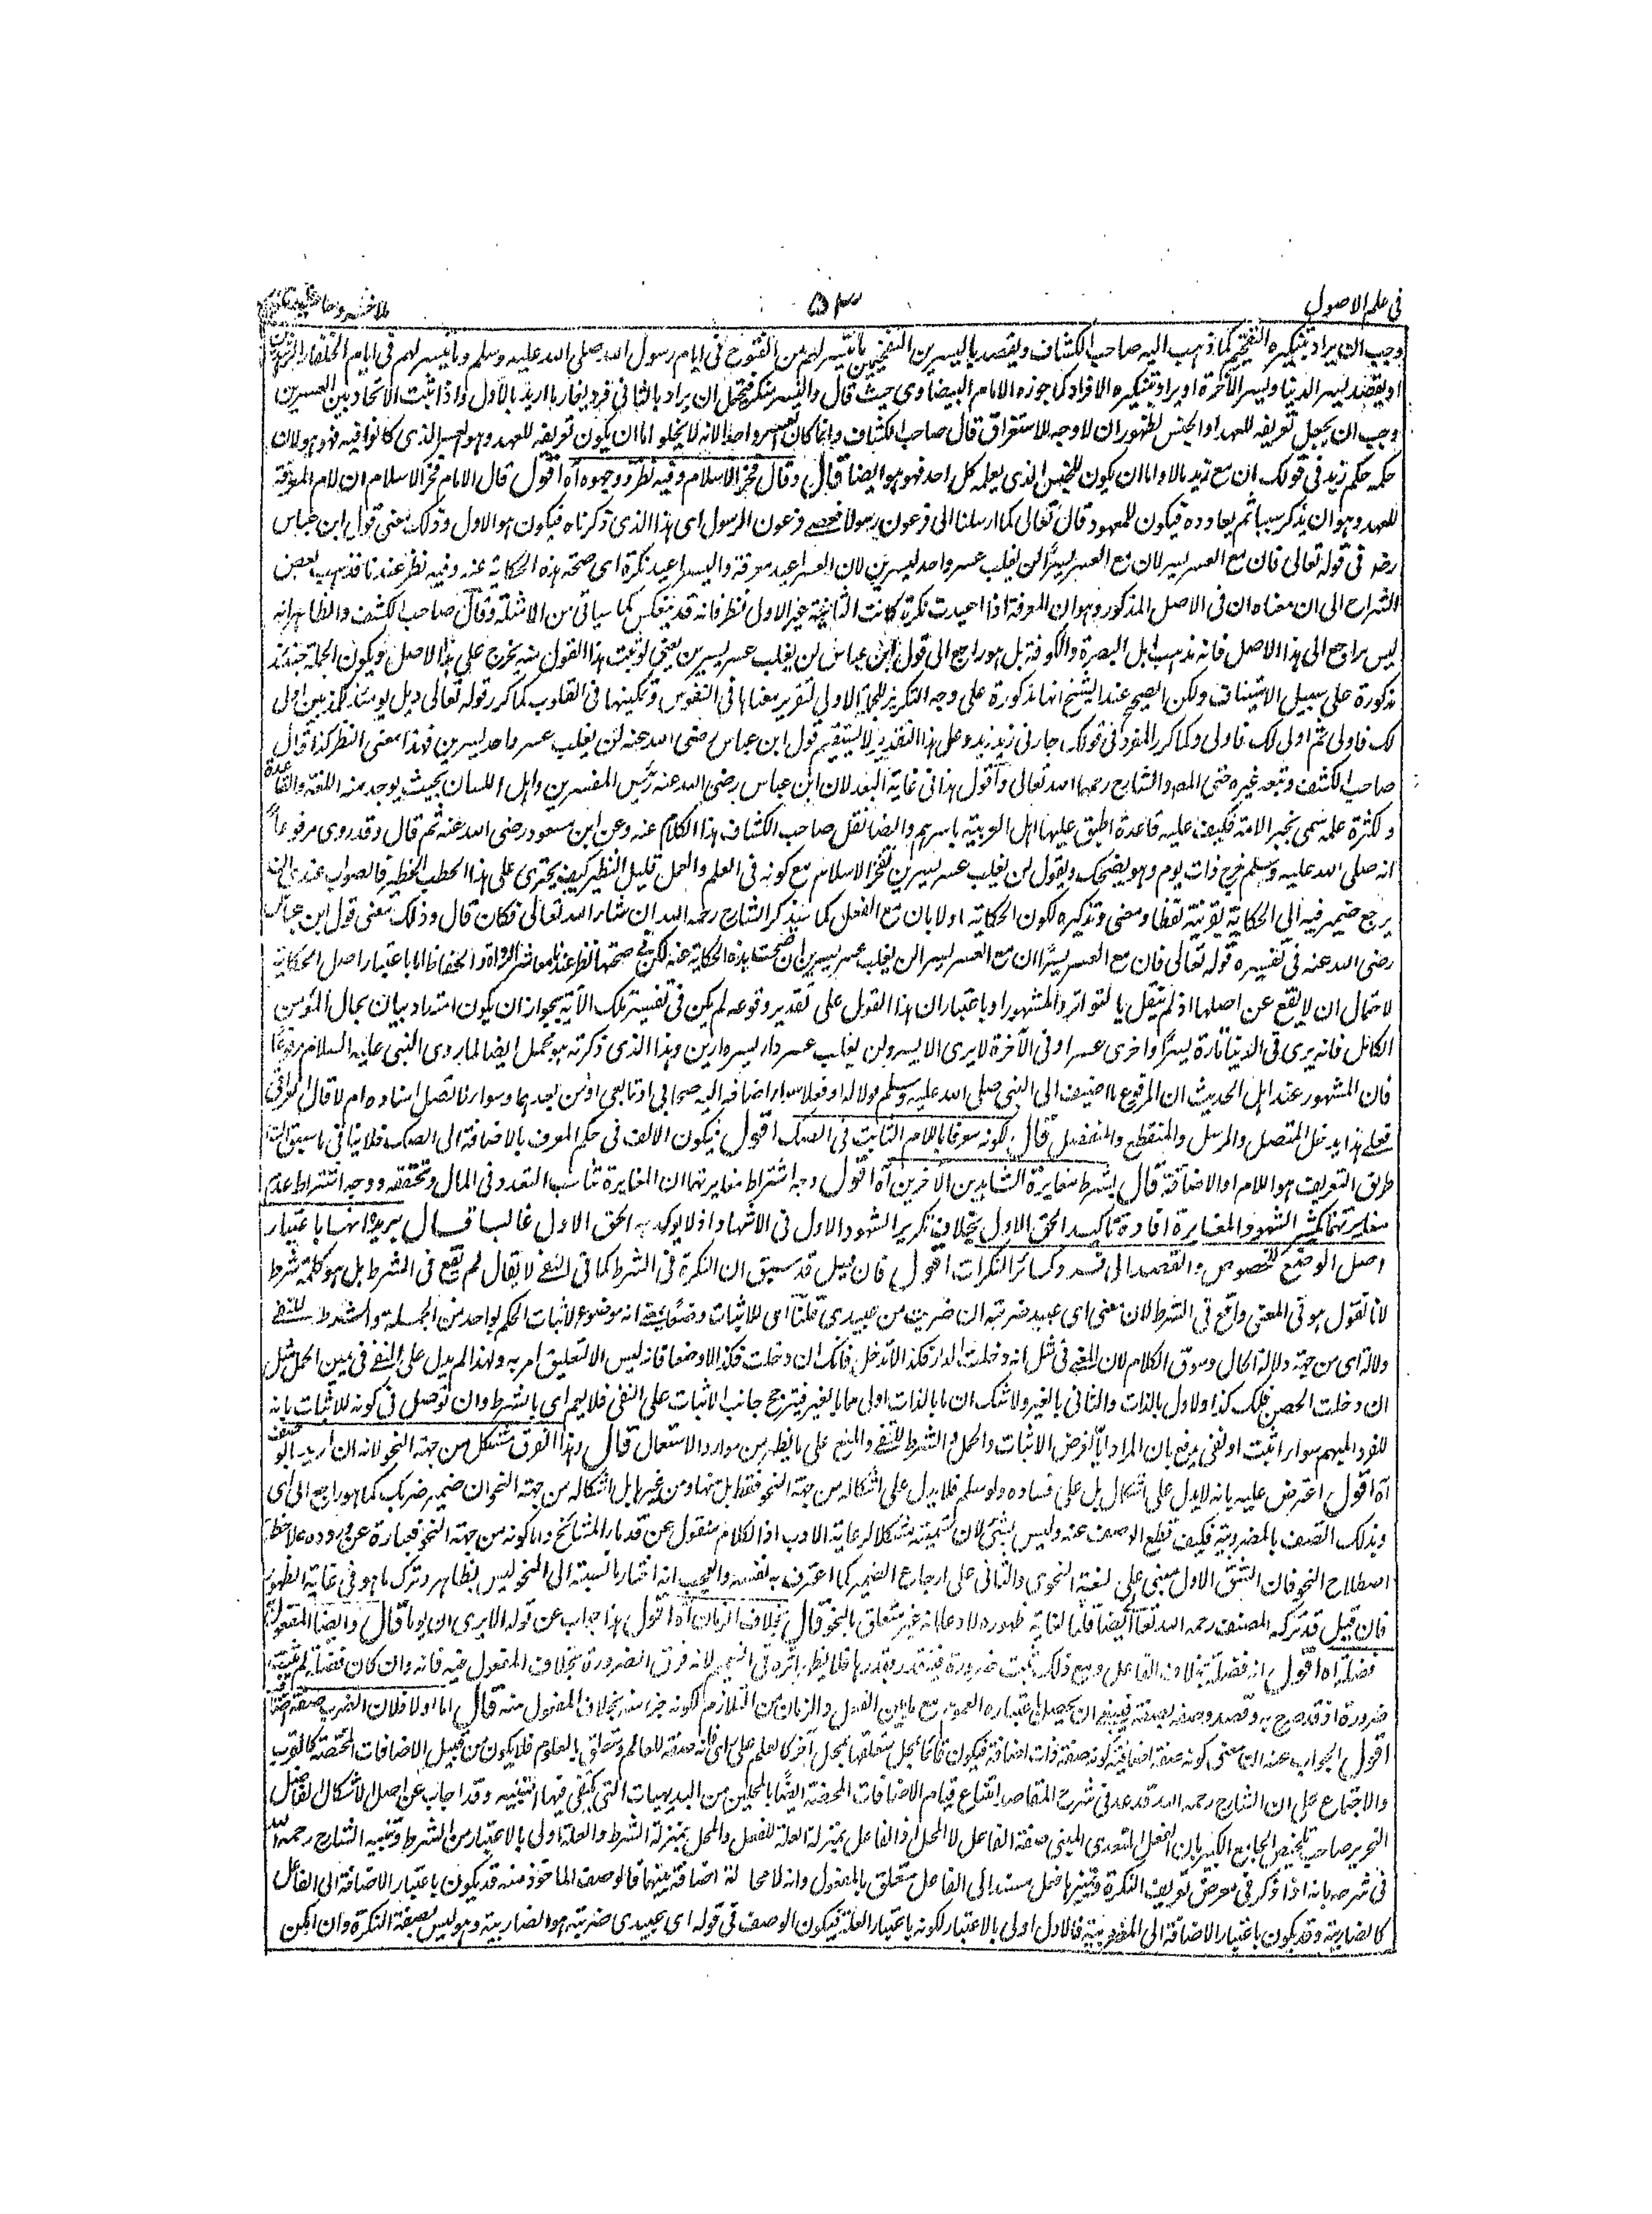 فی علم الاصول
۵۳
ملا خسرو
وجب ان يراد بتنكيره التفخيم كما ذهب اليه صاحب الكشاف ويقصد باليسرين التفخيمين ما تيسر لهم من الفتوح فی ايام رسول الله صلی الله عليه وسلم وما تيسر لهم فی ايام الخلفاء الراشدين
او يقصد يسر الدنيا ويسر الآخرة او يراد بتنكيره الافراد كما جوزه الامام البيضاوی حيث قال واليسر منكر فيحتمل ان يراد بالثانی فرد يغاير ما اريد بالاول واذا ثبت الاتحاد بين العسرين
وجب ان يجعل تعريفه للعهد او الجنس لظهور ان لا وجه للاستغراق قال صاحب الكشاف وانما كان العسر واحدا لانه لا يخلو اما ان يكون تعريفه للعهد وهو العسر الذی كانوا فيه فهو هو لان
حكمه حكم زيد فی قولك ان مع زيد مالا واما ان يكون للجنس الذی يعلمه كل احد فهو هو ايضا قال وقال فخر الاسلام وفيه نظر ووجهوه آه اقول قال الامام فخر الاسلام ان لام المعرفة
للعهد وهو ان يذكر سببا ثم يعاوده فيكون للمعهود قال تعالی كما ارسلنا الی فرعون رسولا فعصی فرعون الرسول ای هذا الذی ذكرناه فيكون هو الاول وذلك معنی قول ابن عباس
رضه فی قوله تعالی فان مع العسر يسرا ان مع العسر يسرا لن يغلب عسر واحد يسرين لان العسر اعيد معرفة واليسر اعيد نكرة ای صحته هذه الحكاية عنه وفيه نظر عندنا فذهب بعض
الشراح الی ان معناه ان فی الاصل المذكور وهو ان المعرفة اذا اعيدت نكرة كانت الثانية غير الاولی نظر فانه قد ينعكس كما سياتی من الامثلة وقال صاحب الكشف والظاهر انه
ليس براجع الی هذا الاصل فانه مذهب اهل البصرة والكوفة بل هو راجع الی قول ابن عباس لن يغلب عسر يسرين يعنی لو ثبت هذا القول منه يخرج علی هذا الاصل ويكون الجملة حينئذ
مذكورة علی سبيل الاستيناف ولكن الصحيح عند الشيخ انها مذكورة علی وجه التكرير للجملة الاولی لتقرير معناها فی النفوس وتمكينها فی القلوب كما كرر قوله تعالی ويل يومئذ للمكذبين اولی
لك فاولی ثم اولی لك فاولی وكما كرر المفرد فی قولك جاءنی زيد زيد وعلی هذا التقدير لا يستقيم قول ابن عباس رضی الله عنه لن يغلب عسر واحد يسرين فهذا معنی النظر كذا قال
صاحب الكشف وتبعه غيره حتی المصه والشارح رحمهما الله تعالی واقول هذا فی غاية البعد لان ابن عباس رضی الله عنه رئيس المفسرين واهل اللسان بحيث يوجد منه اللغة والقاعدة
ولكثرة علمه سمی بحبر الامة فكيف عليه قاعدة اطبق عليها اهل العربية باسرهم وايضا نقل صاحب الكشاف هذا الكلام عنه وعن ابن مسعود رضی الله عنه ثم قال وقد روی مرفوعاً
انه صلی الله عليه وسلم خرج ذات يوم وهو يضحك ويقول لن يغلب عسر يسرين ففخر الاسلام مع كونه فی العلم والعمل قليل النظير كيف يجترئ علی هذا الخطب الخطير فالصواب عندی ان
يرجع ضمير فيه الی الحكاية بقرينة لفظا ومعنی وتذكيره لكون الحكاية اولا بان مع الفعل كما سيذكر الشارح رحمه الله ان شاء الله تعالی فكان قال وذلك معنی قول ابن عباس
رضی الله عنه فی تفسيره قوله تعالی فان مع العسر يسرًا ان مع العسر يسرا لن يغلب عسر يسرين ان صحت هذه الحكاية عنه لكن فی صحتها نظر عندنا معاشر الرواة والحفاظ اما باعتبار اصل الحكاية
لاحتمال ان لا يقع عن اصلها اذ لم تنقل بالتواتر والمشهور او باعتبار ان هذا القول علی تقدير وقوعه لم يكن فی تفسير تلك الآية بجواز ان يكون ابتداء بيان بحال المؤمن
الكامل فانه يری فی الدنيا تارة يسرًا واخری عسرا وفی الآخرة لا يری الا يسر ولن يغلب عسر دار يسر دارين وهذا الذی ذكرته هو محمل ايضا لما روی النبی عليه السلام مرفوعاً
فان المشهور عند اهل الحديث ان المرفوع ما اضيف الی النبی صلی الله عليه وسلم قولا له او فعلا سواء اضافه اليه صحابی او تابعی او من بعدهما وسواء اتصل اسناده ام لا قال العراقی
فعلی هذا يدخل المتصل والمرسل والمنقطع والمنفصل قال لكونه معرفا باللام الثابت فی الصك اقول فيكون الالف فی حكم المعرف بالاضافة الی الصك فلا ينافی ما سبق ان
طريق التعريف هو اللام او الاضافة قال بشرط مغايرة الشاهدين الآخرين آه اقول وجه اشتراط مغايرتهما ان المغايرة تناسب التعدد فی المال وتحققه ووجه اشتراط عدم
مغايرتهما تكثير الشهود والمغايرة افادة تاكيد الحق الاول بخلاف تكرير الشهود الاول فی الاشهاد اذ لا يؤكد به الحق الاول غالبا قال يريد انها باعتبار
اصل الوضع للخصوص والقصد الی فرد كسائر النكرات اقول فان قيل قد سبق ان النكرة فی الشرط كما فی النفی لا يقال لم يقع فی الشرط بل هو كلمة شرط
لانا نقول هو فی المعنی واقع فی الشرط لان معنی ای عبيد ضربته ان ضربت من عبيدی قلنا ای للاثبات وضعا يعنی انه موضوع لاثبات الحكم لواحد من الجملة والشرط للنفی
ولالة ای من جهة دلالة الحال وسوق الكلام لان المنفی فی مثل ان دخلت الدار فكذا لا تدخل فانك ان دخلت فكذا لا وضعا فانه ليس الا تعليق امر به ولهذا لم يدل علی النفی فی يمين الحمل مثل
ان دخلت الحصن فلك كذا والاول بالذات والثانی بالغير ولا شك ان ما بالذات اولی مما بالغير فيترجح جانب الاثبات علی النفی فلا يعم ای بالشرط وان توصل فی كونه للاثبات بانه
للفرد المبهم سواء اثبت او نفی يدفع بان المراد اياً لغرض الاثبات والحمل والشرط للنفی والمنع علی ما يظهر من موارد الاستعمال قال وهذا الفرق مشكل من جهة النحو لانه ان اريد الوصف
آه اقول اعترض عليه بانه لا يدل علی اشكال بل علی فساده ولو سلم فلا يدل علی اشكاله من جهة النحو فقط بل منها ومن غيرها بل اشكاله من جهة النحو ان ضمير ضربك كما هو راجع الی ای
وبذلك اتصف بالمضروبية فكيف قطع الوصف عنه وليس بشئ لان تسميته مشكلا لرعاية الادب اذ الكلام منقول عن قدماء المشائخ واما كونه من جهة النحو فعبارة عن وروده علی ملاحظة
اصطلاح النحو فان الشق الاول مبنی علی لغة النحوی والثانی علی ارجاع الضمير كما اعترف به نفسه والعجب انه اختار ما نسبته الی النحو ليس بظاهر وترك ما هو فی غاية الظهور
فان قيل قد تركه المصنف رحمه الله تعالی ايضا قلنا لغاية ظهوره لا لادعائه انه غير متعلق بالنحو قال بخلاف الزمان آه اقول هذا جواب عن قوله الا يری ان يوما قال وايضا المفعول
فضلة آه اقول انه فضلة بخلاف الفاعل ومع ذلك ثبت ضرورة فيتقدر بقدرها فلا يظهر اثره فی التعميم لانه فرق الضرورة بخلاف المفعول فيه فانه وان كان فضلة لم يثبت
ضرورة اذ قد صرح به وقصد وصفه بصفة فينبغی ان يحصل باعتباره العموم مع ما بين الفعل والزمان من التلازم لكونه جزءه بخلاف المفعول منه قال اما اولا فلان الضرب صفة اضافية
اقول الجواب عنه ان معنی كونه صفة اضافية كونه صفة ذات اضافة فيكون قائما بمحل متعلقا بمحل آخر كالعلم علی رای فانه صفة للعالم ومتعلق بالمعلوم فلا يكون من قبيل الاضافات المختصة كالقرب
والاجتماع علی ان الشارح رحمه الله قد عد فی شرح المقاصد امتناع قيام الاضافات المحضة ايضًا بالمحلين من البديهيات التی يكتفی فيها بالتنبيه وقد اجاب عن اصل الاشكال الفاضل
النحرير صاحب تلخيص الجامع الكبير بان الفعل المتعدی المبنی صفة الفاعل لا المحل اذ الفاعل بمنزلة العلة للفعل والمحل بمنزلة الشرط والعلة اولی بالاعتبار من الشرط وتنبيه الشارح رحمه الله
فی شرحه بانه اذا ذكر فی معرض تعريف النكرة وتمييزها فعل مسند الی الفاعل متعلق بالمفعول وانه لا محالة اضافة بينهما فالوصف الماخوذ منه قد يكون باعتبار الاضافة الی الفاعل
كالضاربية وقد يكون باعتبار الاضافة الی المضروبية فالاول اولی بالاعتبار لكونه باعتبار العلة فيكون الوصف فی قوله ای عبيدی ضربته هو الضاربية وهو ليس بصفة النكرة وان امكن